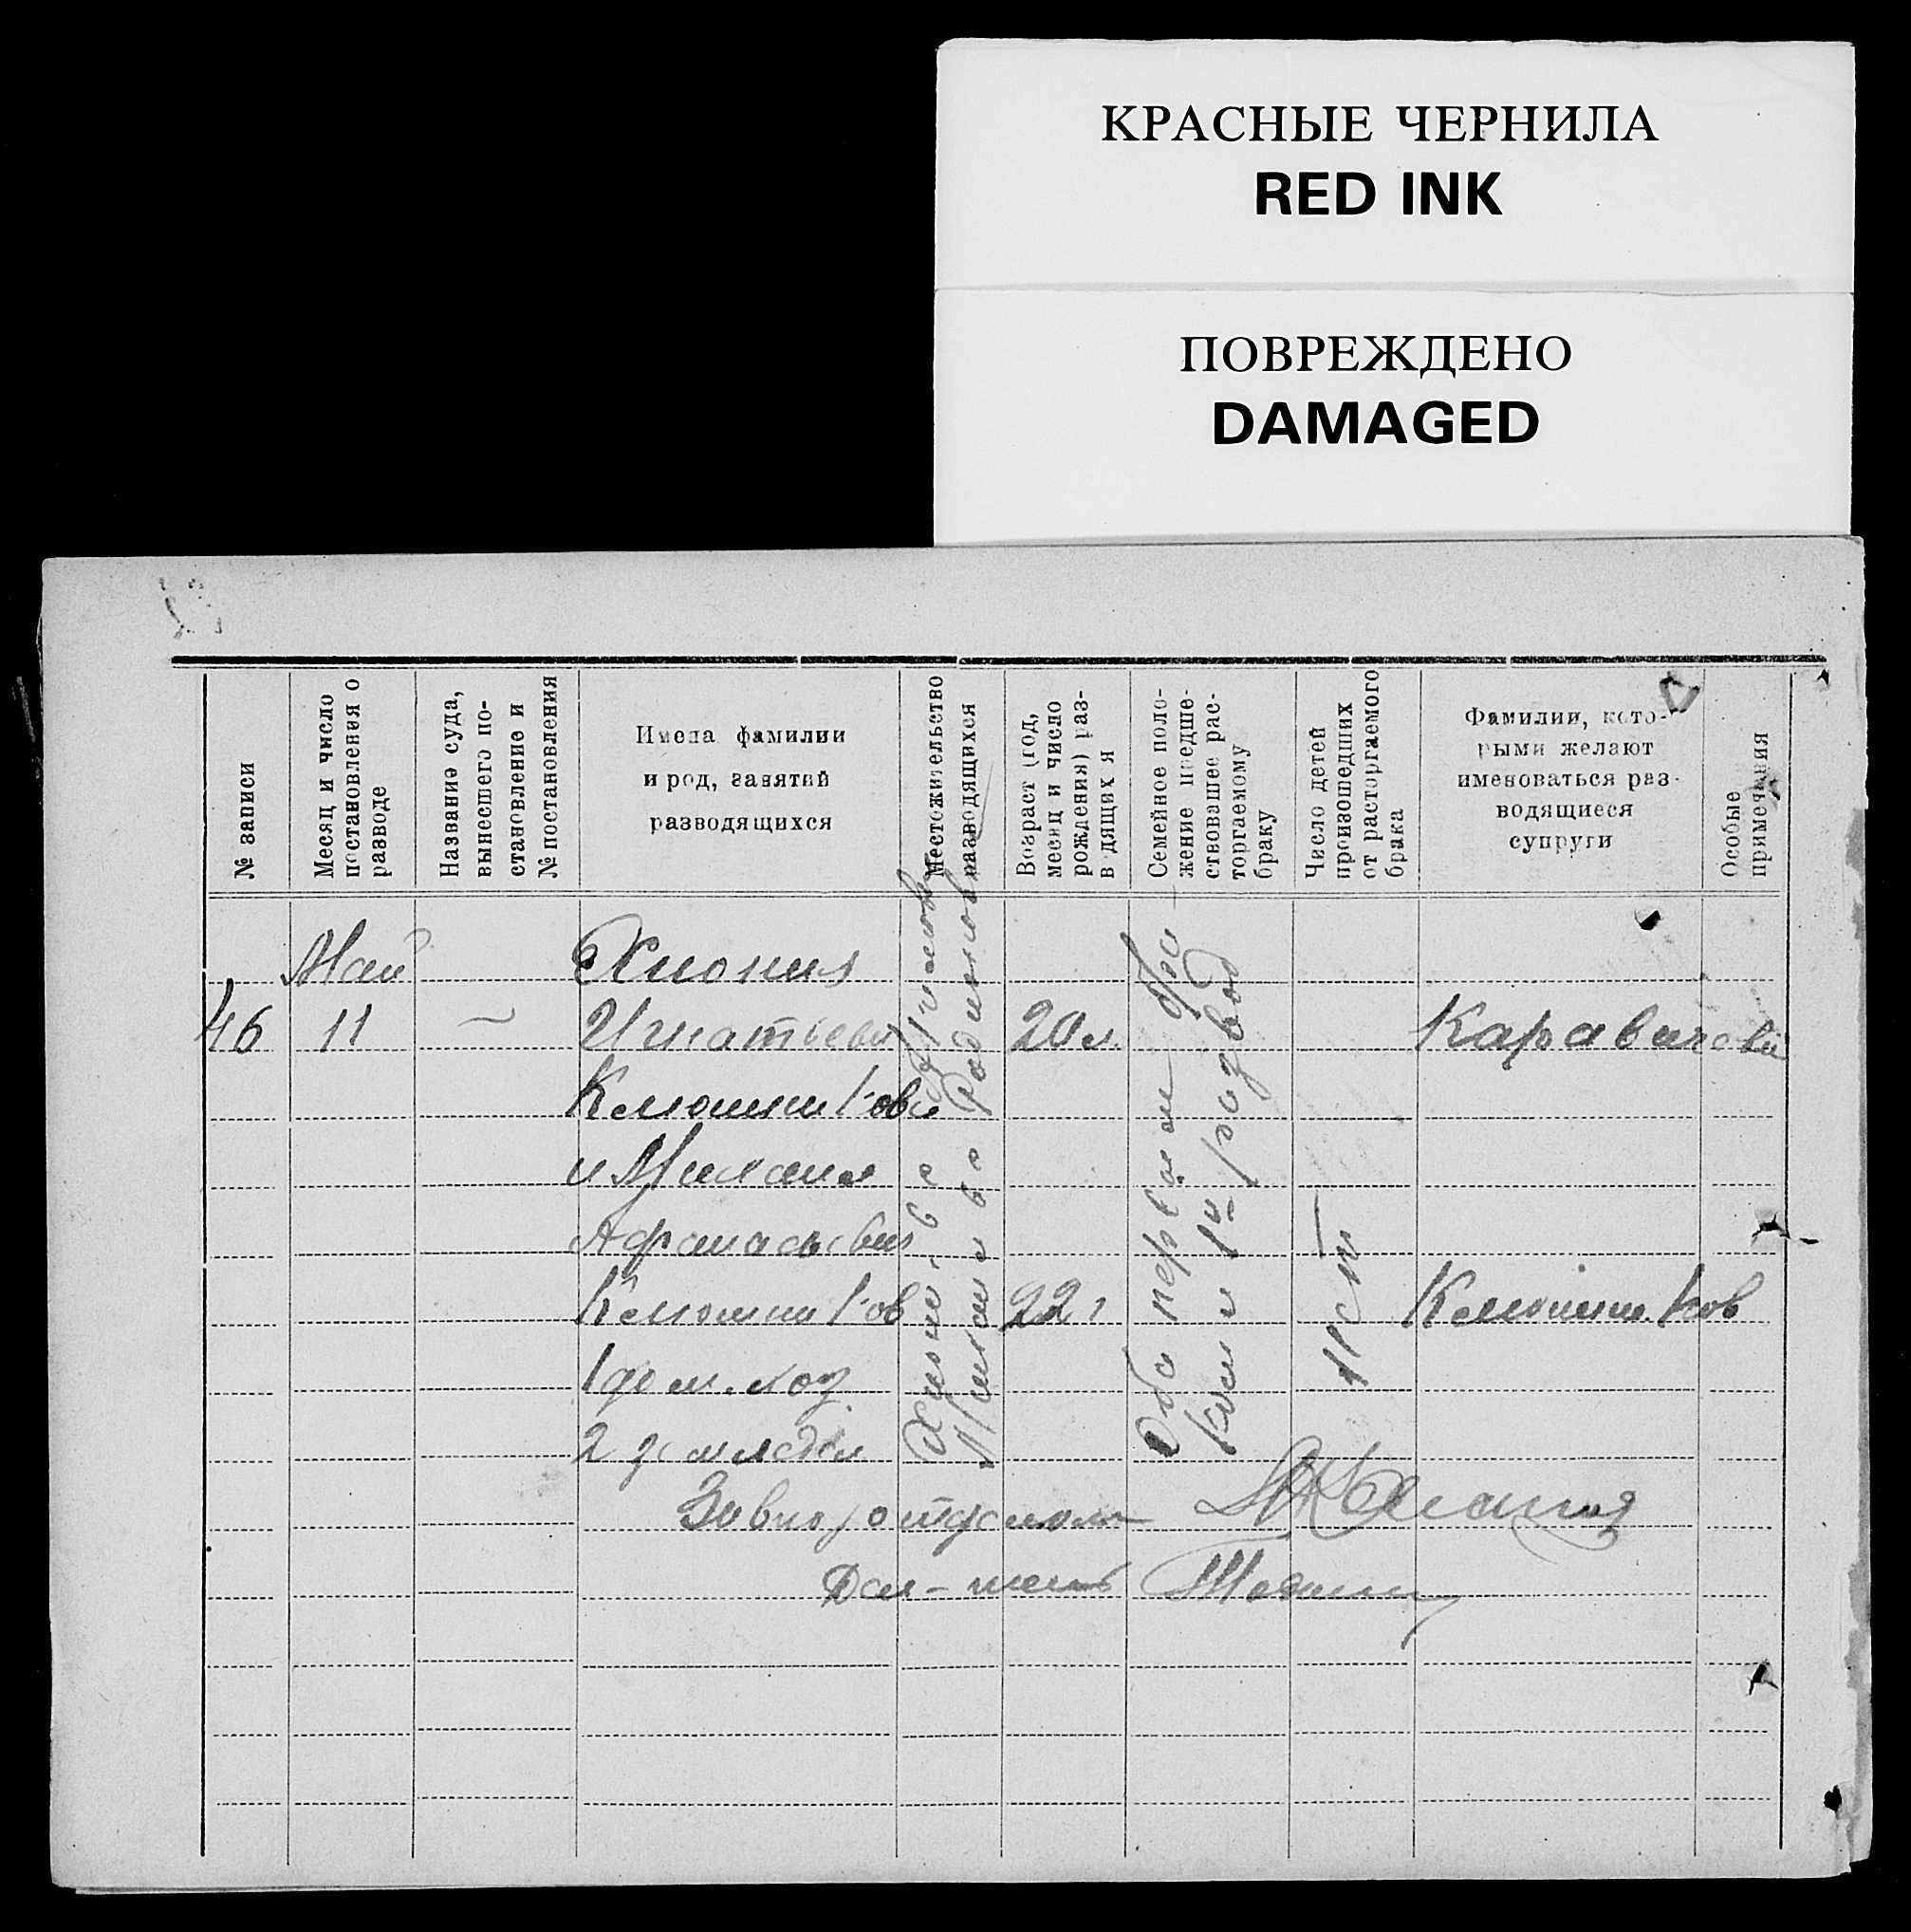 КРАСНЫЕ ЧЕРНИЛА
RED INK
ПОВРЕЖДЕНО
DAMAGED
№ записи
Месяц и число
постановления о
разводе
Название суда,
вынесшего по-
становление и
№ постановления
Имена фамилии
и род, занятий
разводящихся
Местожительство
разводящихся
Возраст (год,
месяц и число
рождения) раз-
водящихся
Семейное поло-
жение предше-
ствовавшее рас-
торгаемому
браку
Число детей
происшедших
от расторгаемого
брака
Фамилии, кото-
рыми желают
именоваться раз-
водящиеся
супруги
Особые
примечания
46
Май
11
Хиония
Игнатьева
Клюшникова
и Михаил
Афанасьевич
Клюшников
1 дом. хоз.
2 земледел.
Хиония в с
Михаил в с Родионовка
20 л.
22 г
Оба первым бра-
ком и 1й развод
Нет
Каравичева
Клюшников
Завподотделом
Дел-тель